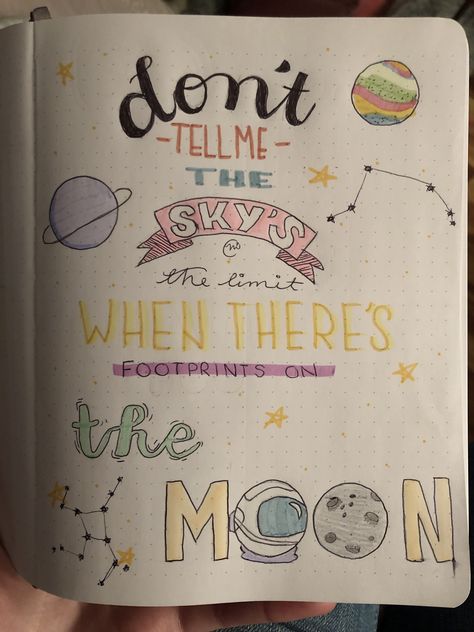 don't
-TELL ME-
THE
SKY'S
the limit
WHEN THERE'S
FOOTPRINTS ON
the
MOON